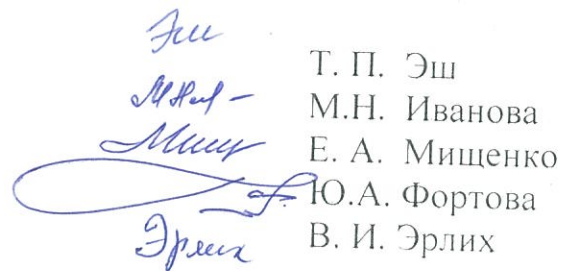 Эш Т. П. Эш
М.Н. Иванова
Мищ Е. А. Мищенко
Ю.А. Фортова
Эрлих В. И. Эрлих